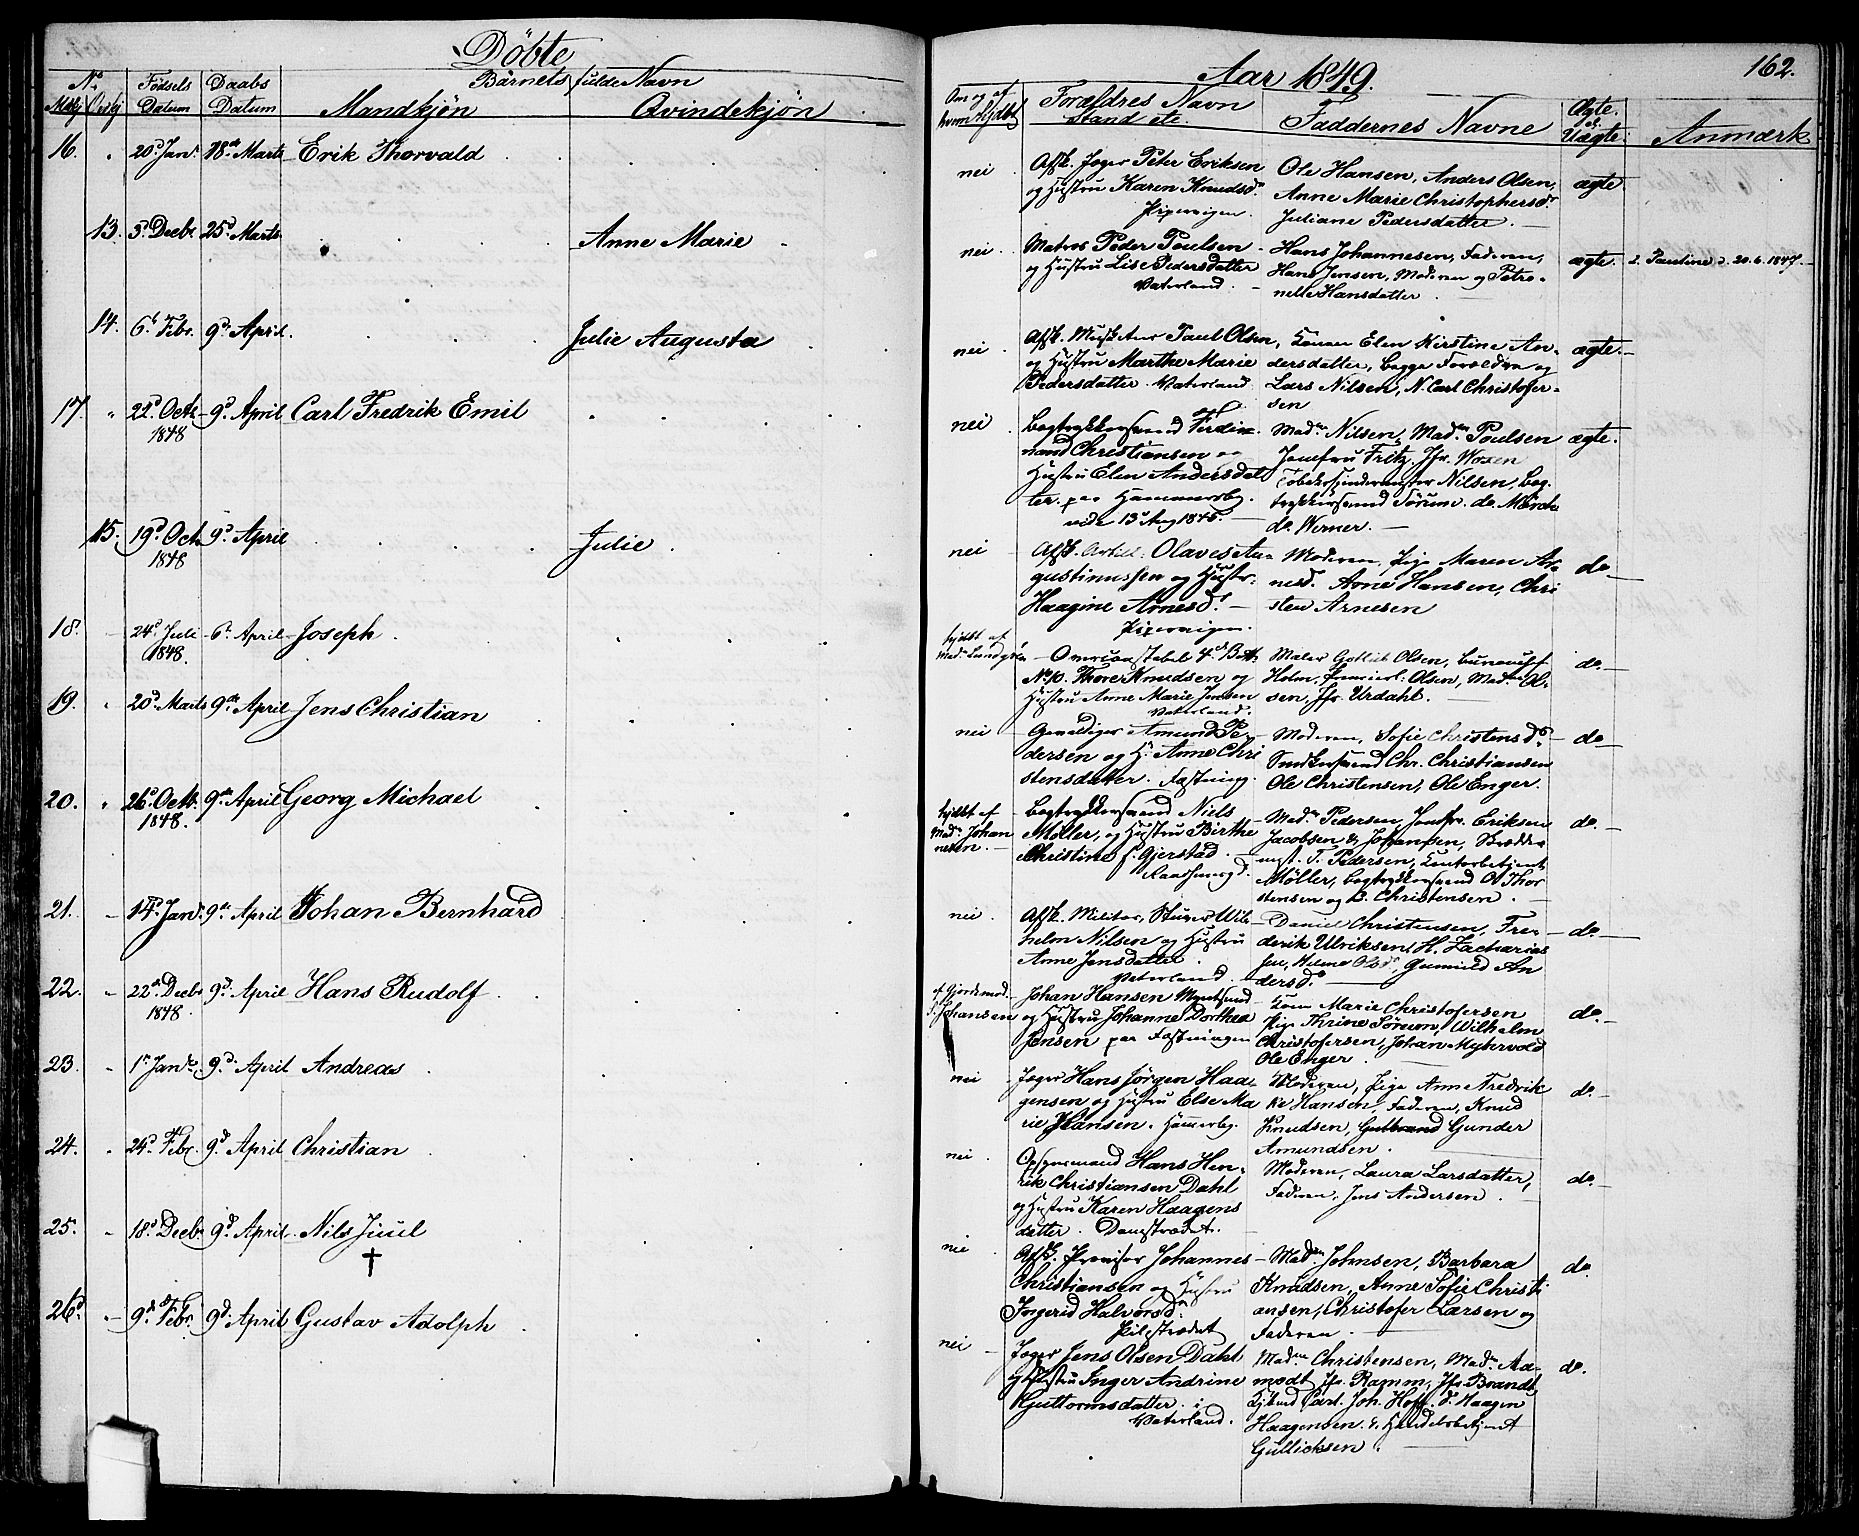 Döbte
Aar 1849.
162.
No.
Mkj. Qvkj.
Fødsels Datum
Daabs Datum
Barnets fulde Navn
Mandkjøn
Qvindekjøn
Om og af hvem hjdbt
Forældres Navn Stand etc.
Faddernes Navne
Ægte el. Uægte.
Anmærk
16. 20d Jan. 18de Marts Erik Thorvald
nei
Afsk. Jæger Peter Eriksen
og Hustru Karen Knudsdr
Pipervigen.
Ole Hansen, Anders Olsen,
Anne Marie Christophersdr
Juliane Pedersdatter.
ægte
13. 3d Decbr 25d Marts
Anne Marie
nei
Matros Peder Poulsen
og Hustru Lise Pedersdatter
Vaterland.
Hans Johannesen, Faderen,
Hans Jensen, Moderen og Petro-
nelle Hansdatter
ægte.
Pauline 20.6.1847.
14. 6t Febr. 9de April.
Julie Augusta
nei
Afsk. Musketeer Paul Olsen,
og Hustru Marthe Marie
Pedersdatter. Vaterland
Konen Elen Kirstine An-
dersdatter, begge Forældre og
Lars Nilsen, N. Carl Christofer-
sen
ægte.
17. 22d Octb. 1848 9d April Carl Fredrik Emil
nei
Bogtrykkersvend Ferdi-
nand Christiansen og
Hustru Elen Andersdat
ter. paa Hammersbg.
vide 13d Aug 1845.
Madm Nilsen, Madm Poulsen
Jomfru Fritz, Jfr. Woxen
Tobaksspindermester Nilsen, Bog-
trykkersvend Sørum. do. Mørch
do. Werner.
ægte.
15. 19d Oct. 1848 9d April
Julie
nei
Afsk. Artill. Olaves Au-
gustinussen og Hustr.
Haagine Arnesd.
Pipervigen.
Moderen, Pige Maren Ar-
nesd. Arne Hansen, Chri
sten Arnesen
do
18. 24d Juli 1848. 6t April Joseph
hjdbt af Mad. Lundgren
Overconstabel 4d Batt.
No 10. Thore Knudsen og
Hustru Anne Marie Jensen
Vaterland.
Maler Gottlieb Olsen, Bureauch.
Holm, Premierl. Olsen, Madm Ol-
sen, Jfr. Urdahl.
do.
19. 20d Marts 9de April Jens Christian
nei
Gevaldiger Amund Pe-
dersen og H. Anne Chri
stensdatter. Fæstning.
Moderen, Sofie Christensdr
Snedkersvend Chr. Christiansen
Ole Christensen, Ole Enger.
do
20. 26d Octb. 1848. 9de April Georg Michael
hjdbt af Madm Johan nesen.
Bogtrykkersvend Niels
Møller, og Hustru Birthe
Christine f. Gjerstad.
Madm Pedersen, Jomfr. Eriksen
Jacobsen & Johansen,
T. Pedersen, Contorbetjent
Møller, Bogtrykkersvend O. Thor
stensen og B. Christensen.
do.
21. 14d Jan. 9de April Johan Bernhard
nei
Afsk. Militær, Stuer Wil-
helm Nilsen og Hustru
Anne Jensdatter.
Vaterland.
Daniel Christensen, Fre-
derik Ulriksen, H. Zacharias
sen, Helene Olsdr, Gunnild An
dersd.
do.
22. 22de Decbr 1848. 9d April Hans Rudolf
af Gjordemod. J. Johansen
Johan Hansen
og Hustru Johanne Dorthea
Jensen paa Fæstningen
Konen Marie Christofersen
Pige Thrine Sørum, Wilhelm
Christofersen, Johan Myhrvold
Ole Enger
do.
23. 1t Jan. 9d. April Andreas
nei
Jæger Hans Jörgen Haa-
gensen og Hustru Else Ma
rie Hansen. Hammerbg.
Moderen, Pige Anne Fredrik
ke Hansen, Faderen, Knud
Knudsen, Gulbrand Gunder
Amundsen.
do.
24. 24d Febr. 9d April Christian
nei
Opsynsmand Hans Hen-
rik Christiansen Dahl
og Hustru Karen Haagens
datter. Damstrædet.
Moderen, Laura Larsdatter,
Faderen, Jens Andersen.
do.
25. 18d Decbr 9d April Nils Juul
†
nei
Afsk. Provisor Johannes
Christiansen og Hustru
Ingerid Halvorsdr
Pilestrædet
Madm Johnsen, Barbara
Knudsen, Anne Sofie Christi
ansen, Christofer Larsen og
Faderen
do.
26. 9d Febr. 9d April Gustav Adolph
nei
Jæger Jens Olsen Dahl
og Hustru Inger Andrine
Guttormsdatter. i
Vaterland.
Madm Christensen, Madm Aa-
modt, Jfr. Ramm, Jfr. Brandt,
Carl. Joh. Hoff. d. Haagen
Haagensen. & Handelsbetjent
Gullicksen.
do.